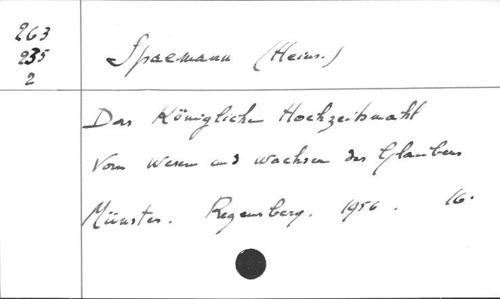 263
235
2
Spaemann (Heinr.)
Das Königliche Hochzeitsmahl
Vom Wesen und Wachsen des Glaubens
Münster. Regensberg. 1956. 16.